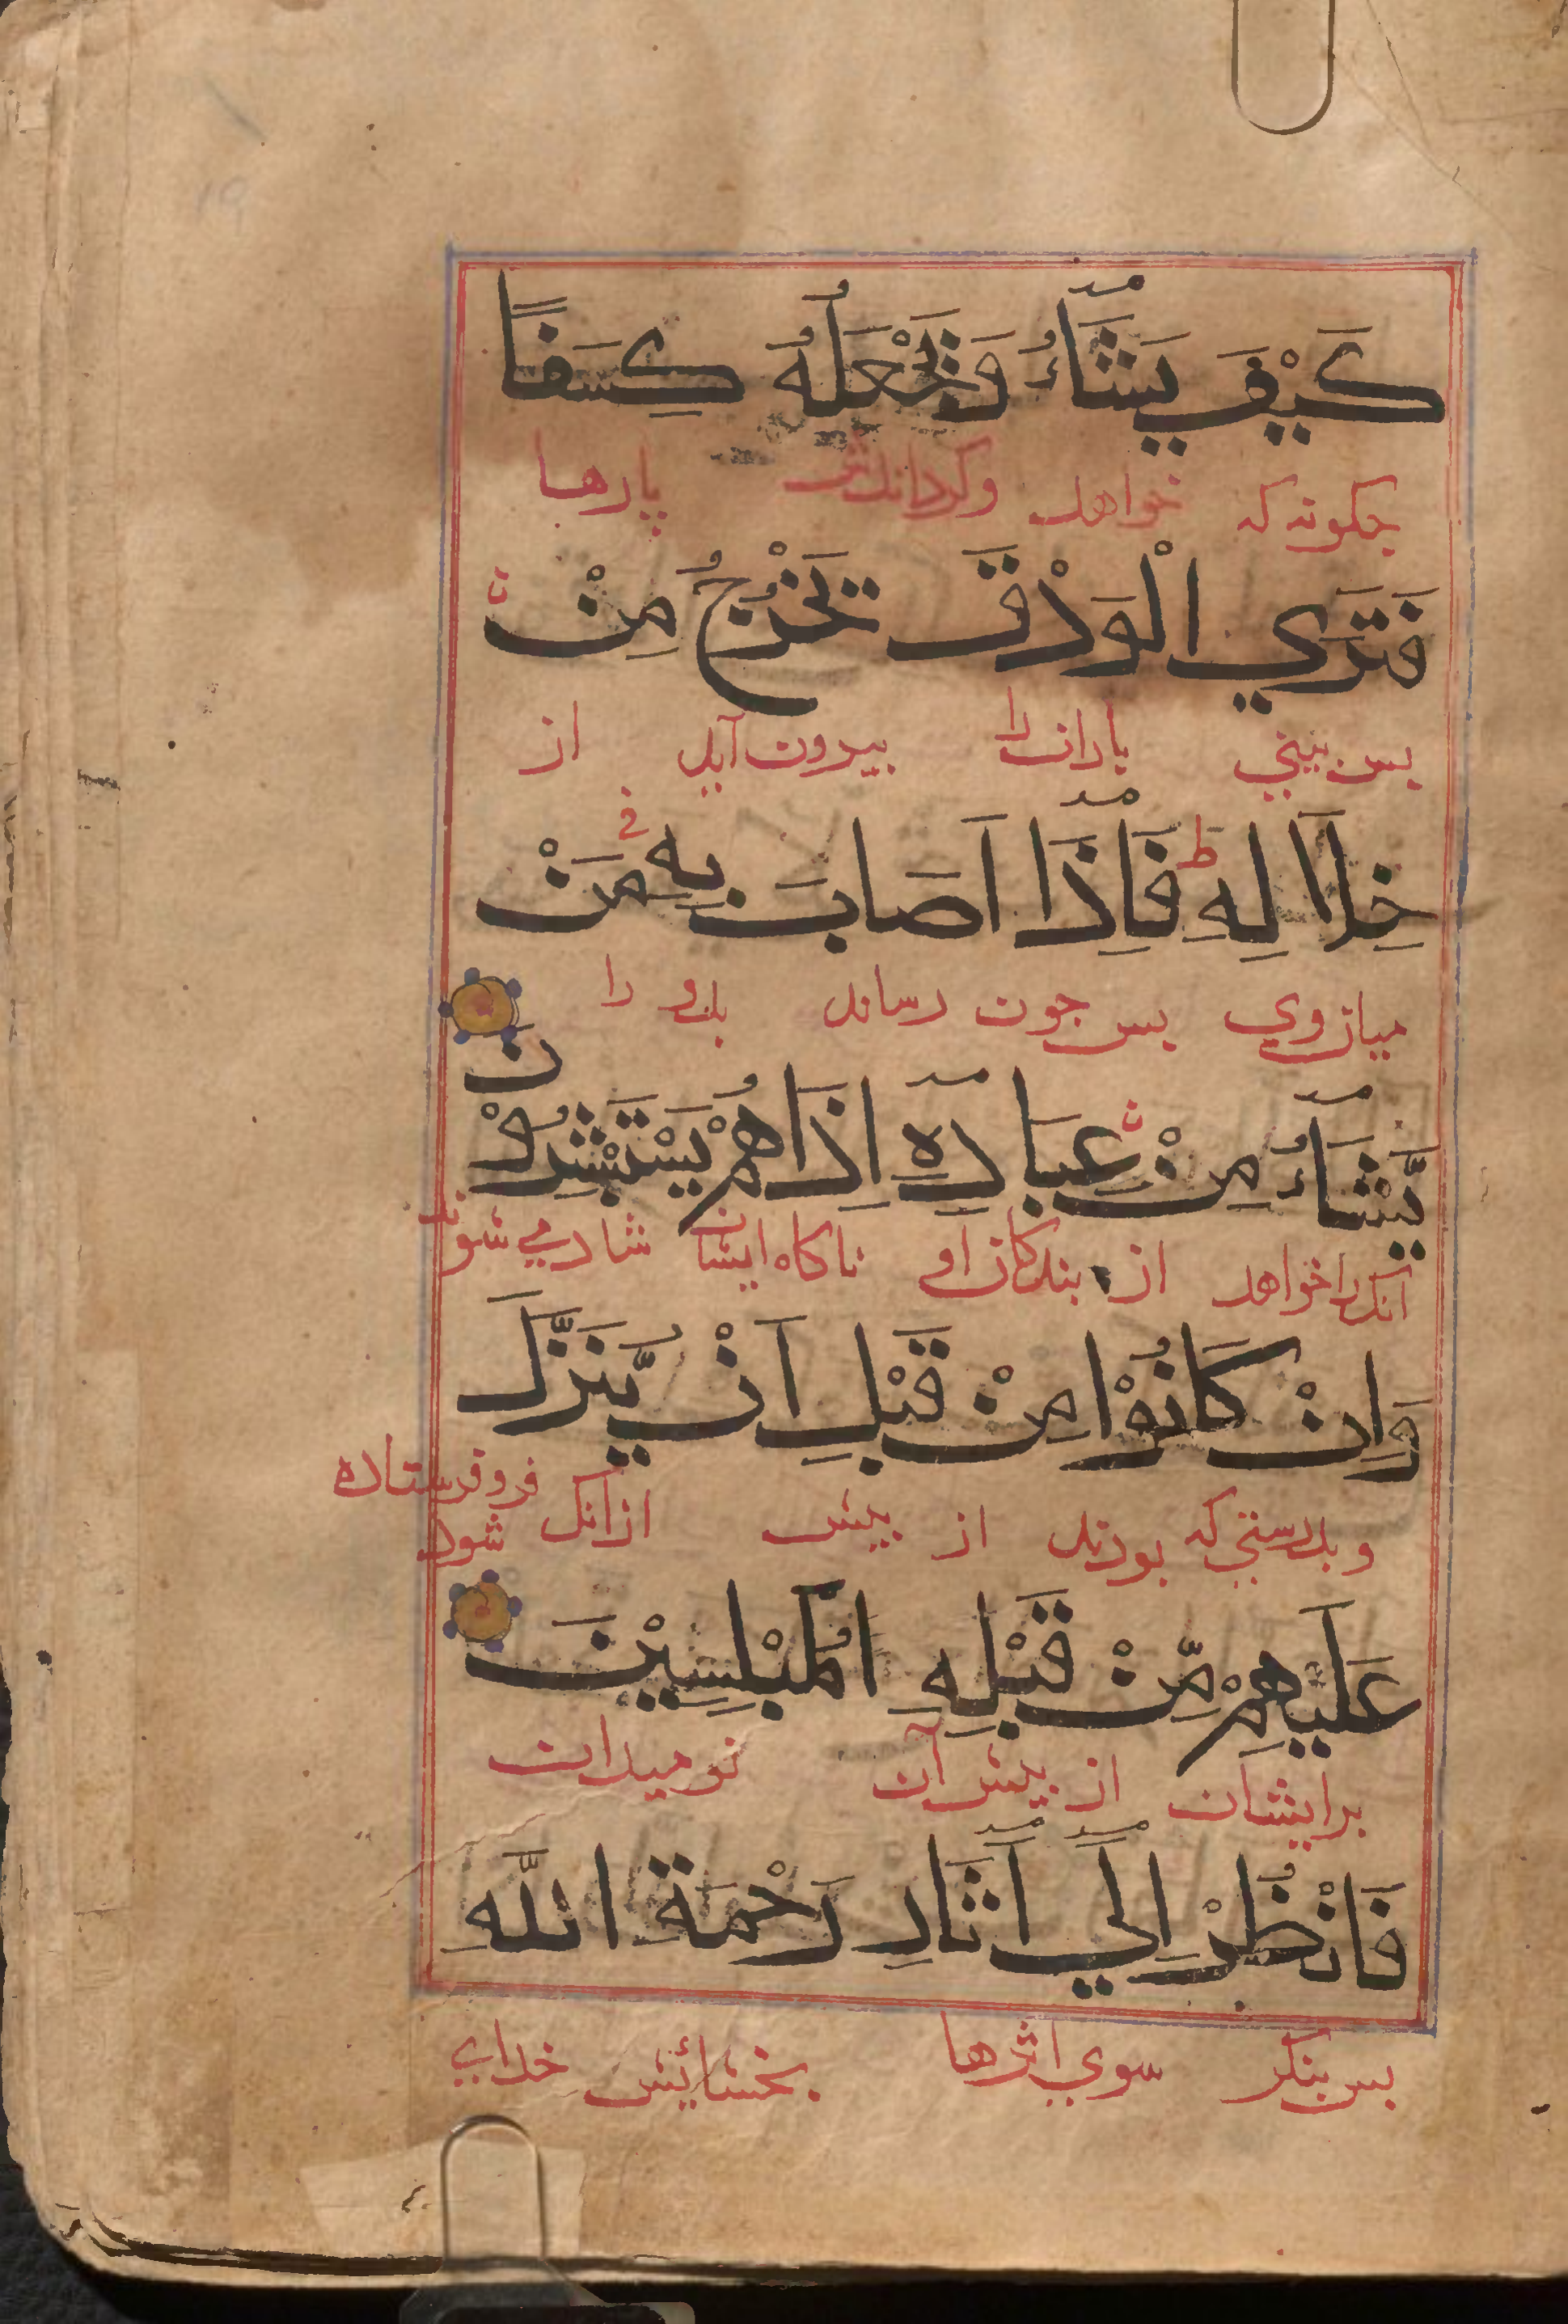 كَيْفَ يَشَآءُ وَيَجْعَلُهُ كِسَفًا
چکونه که خواهد و کرداندش پارها
فَتَرَي الْوَدْقَ يَخْرُجُ مِنْ
بس بيني باران را بيرون آيد از
خِلَالِهِ ط فَاِذَآ اَصَابَ بِه مَنْ
ميان وي بس چون رساند بدو را
يَّشَآءُ مِنْ عِبَادِهِٓ اِذَا هُمْ يَسْتَبْشِرُوْنَ
انکرا خواهد از بندکان او ناکاه ايشان شادمي شوند
وَاِنْ كَانُوْا مِنْ قَبْلِ اَنْ يُّنَزَّلَ
و بدرستي که بودند از بيش ازانک فروفرستاده شود
عَلَيْهِمْ مِّنْ قَبْلِهِ لَمُبْلِسِيْنَ
برايشان از بيش آن نوميدان
فَانْظُرْ اِلَيٓ اٰثَارِ رَحْمَةِ اللَّهِ
بس بنکر سوي اثرها بخشائيش خداي